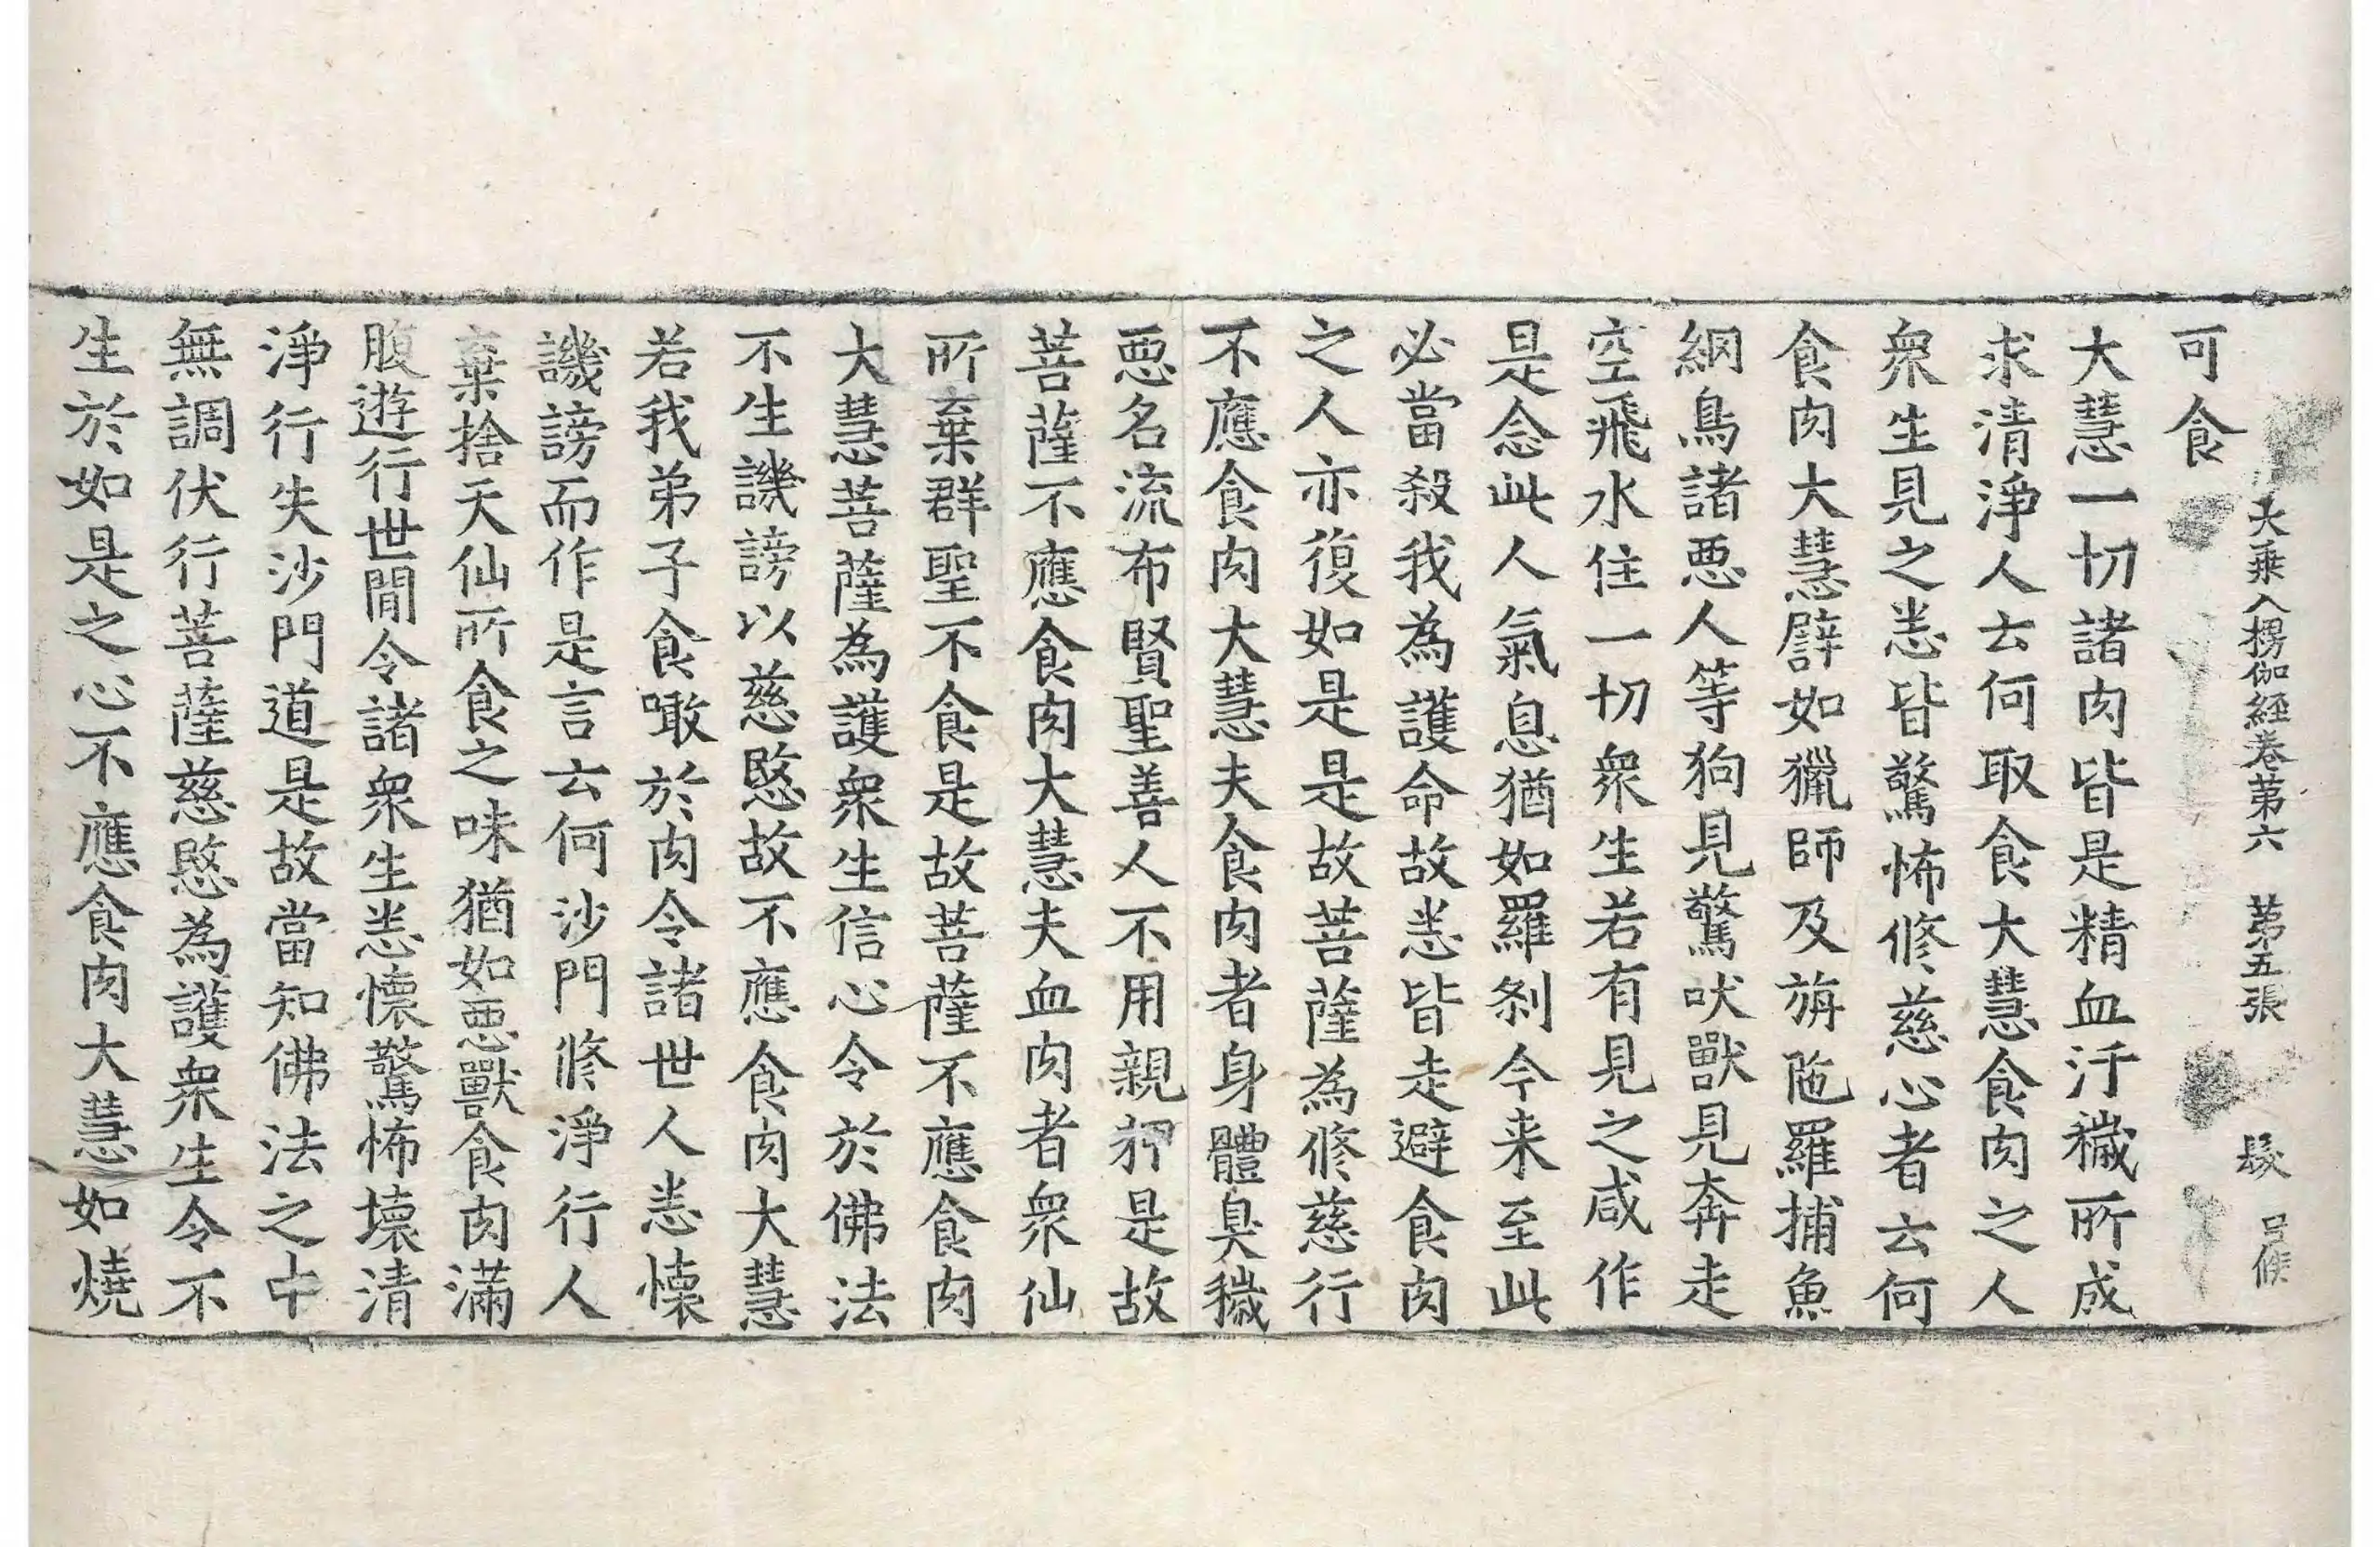 大乘入楞伽經卷第六　第五張　髮　吕候
可食
大慧一切諸肉皆是精血汙穢所成
求清淨人云何取食大慧食肉之人
衆生見之悉皆驚怖修慈心者云何
食肉大慧譬如獵師及旃陁羅捕魚
網鳥諸惡人等狗見驚吠獸見奔走
空飛水住一切衆生若有見之咸作
是念此人氣息猶如羅刹今来至此
必當殺我為護命故悉皆走避食肉
之人亦復如是是故菩薩為修慈行
不應食肉大慧夫食肉者身體臭穢
惡名流布賢聖善人不用親狎是故
菩薩不應食肉大慧夫血肉者衆仙
所棄群聖不食是故菩薩不應食肉
大慧菩薩為護衆生信心令於佛法
不生譏謗以慈愍故不應食肉大慧
若我弟子食噉於肉令諸世人悉懷
譏謗而作是言云何沙門修淨行人
棄捨天仙所食之味猶如惡獸食肉滿
腹遊行世間令諸衆生悉懷驚怖壞清
淨行失沙門道是故當知佛法之中
無調伏行菩薩慈愍為護衆生令不
生於如是之心不應食肉大慧如燒